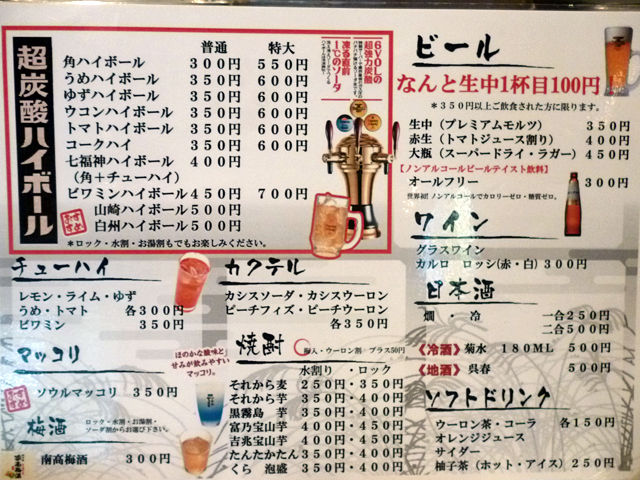 超炭酸ハイボール
普通 特大
角ハイボール 300円 550円
うめハイボール 350円 600円
ゆずハイボール 350円 600円
ウコンハイボール 350円 600円
トマトハイボール 350円 600円
コークハイ 350円 600円
七福神ハイボール 400円
（角＋チューハイ）
ビワミンハイボール 450円 700円
山崎ハイボール 500円
白州ハイボール 500円
＊ロック・水割・お湯割もでもお楽しみください。
6VOLの
超強力炭酸
凍る直前
1℃のソーダ
ビール
なんと生中1杯目100円
＊350円以上ご飲食された方に限ります。
生中（プレミアムモルツ） 350円
赤生（トマトジュース割り） 400円
大瓶（スーパードライ・ラガー） 450円
【ノンアルコールビールテイスト飲料】
オールフリー 300円
世界初！ノンアルコールでカロリーゼロ・糖質ゼロ。
ワイン
グラスワイン
カルロ ロッシ(赤・白) 300円
日本酒
燗・冷 一合250円
二合500円
《冷酒》菊水 180ML 500円
《地酒》呉春 500円
ソフトドリンク
ウーロン茶・コーラ 各150円
オレンジジュース
サイダー
柚子茶（ホット・アイス） 250円
チューハイ
レモン・ライム・ゆず
うめ・トマト 各300円
ビワミン 350円
カクテル
カシスソーダ・カシスウーロン
ピーチフィズ・ピーチウーロン
各350円
マッコリ
ほのかな酸味と
甘みが飲みやすい
マッコリ。
ソウルマッコリ 350円
梅酒
ロック・水割・お湯割・
ソーダ割からお選び下さい。
南高梅酒 300円
焼酎
梅入・ウーロン割 プラス50円
水割り・ロック
それから麦 250円・350円
それから芋 350円・400円
黒霧島 芋 350円・400円
富乃宝山芋 400円・450円
吉兆宝山芋 400円・450円
たんたかたん 350円・400円
くら 泡盛 350円・400円